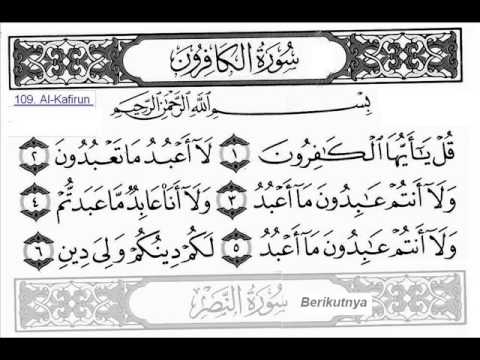 سُورَةُ الْكَافِرُونَ
109. Al-Kafirun
بِسْمِ اللَّهِ الرَّحْمَٰنِ الرَّحِيمِ
قُلْ يَٰٓأَيُّهَا ٱلْكَٰفِرُونَ ١ لَآ أَعْبُدُ مَا تَعْبُدُونَ ٢
وَلَآ أَنتُمْ عَٰبِدُونَ مَآ أَعْبُدُ ٣ وَلَآ أَنَا۠ عَابِدٌ مَّا عَبَدتُّمْ ٤
وَلَآ أَنتُمْ عَٰبِدُونَ مَآ أَعْبُدُ ٥ لَكُمْ دِينُكُمْ وَلِىَ دِينِ ٦
سُورَةُ النَّصْرِ
Berikutnya